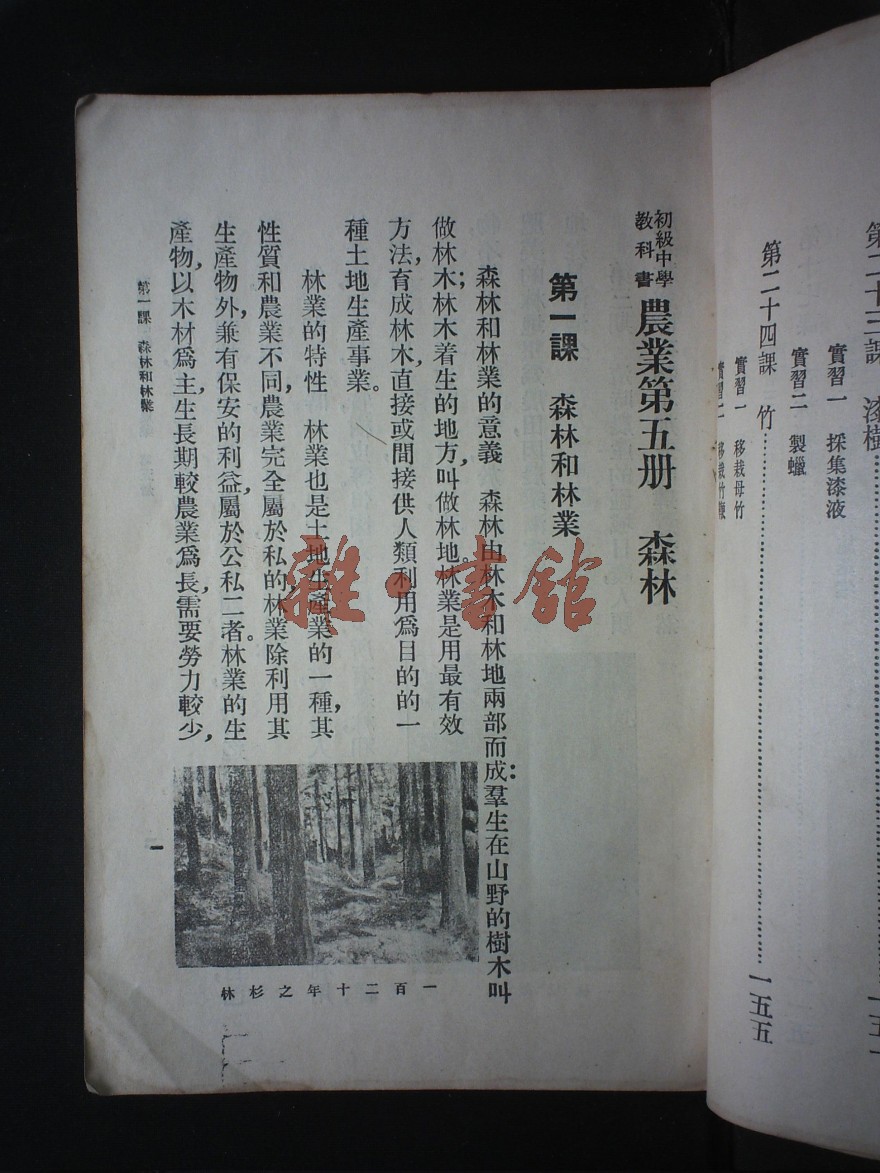 第二十三課 漆樹
實習一 採集漆液
實習二 製蠟
第二十四課 竹……一五五
實習一 移栽母竹
實習二 移栽竹鞭
初級中學
教科書
農業第五册 森林
第一課 森林和林業
森林和林業的意義 森林由林木和林地兩部而成:羣生在山野的樹木叫
做林木;林木着生的地方,叫做林地。林業是用最有效
方法,育成林木,直接或間接供人類利用爲目的的一
種土地生產事業。
林業的特性 林業也是土地生產業的一種,其
性質和農業不同,農業完全屬於私的,林業除利用其
生產物外,兼有保安的利益,屬於公私二者。林業的生
產物,以木材爲主,生長期較農業爲長,需要勞力較少,
一百二十年之杉林
第一課 森林和林業
一
雜·書館